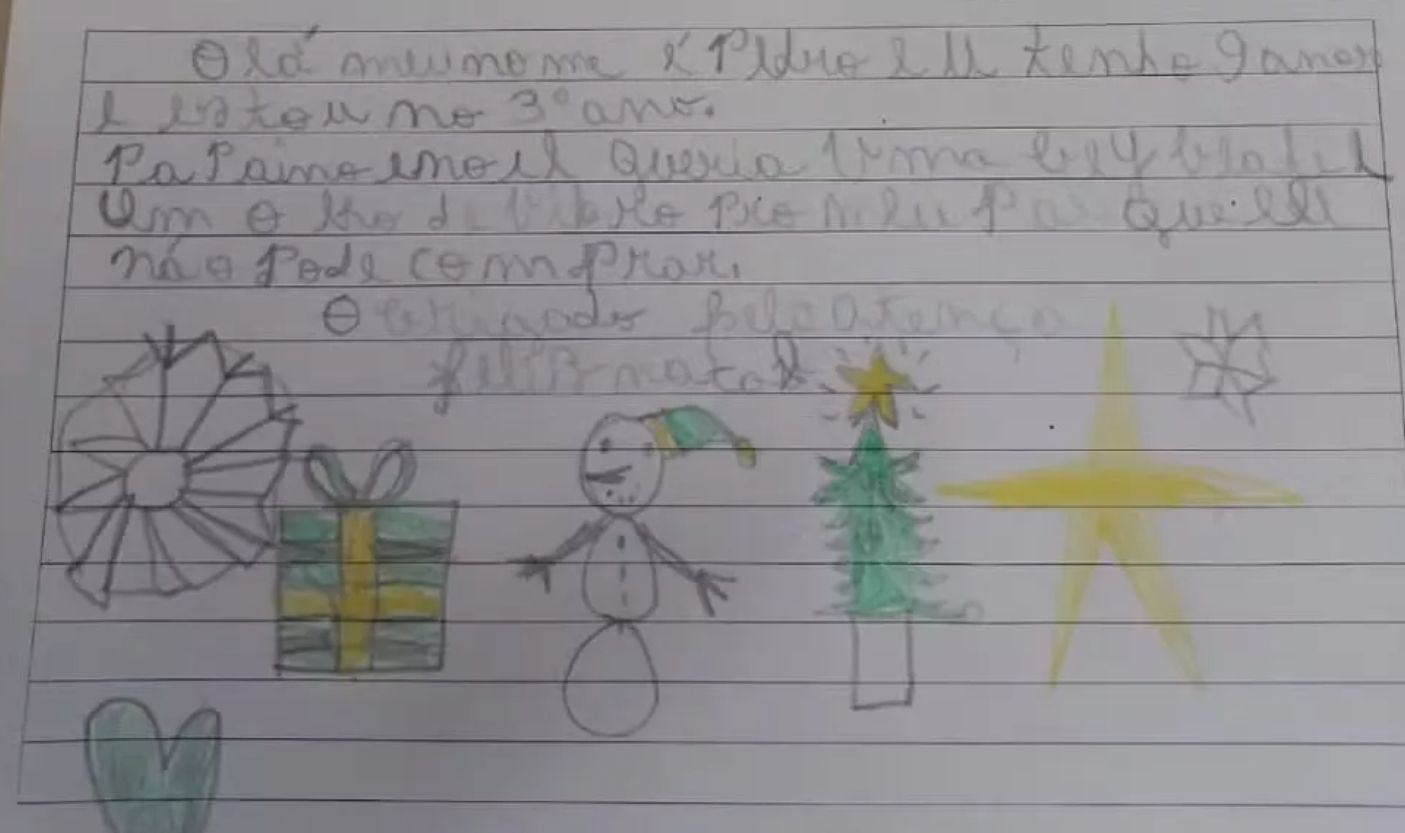 Olá meu nome é Pedro e eu tenho 9 anos
e estou no 3º ano.
Papai noel queria uma beyblade e
Um olho de vidro pro meu pai que ele
não pode comprar.
Obrigado pela atença
feliz natal